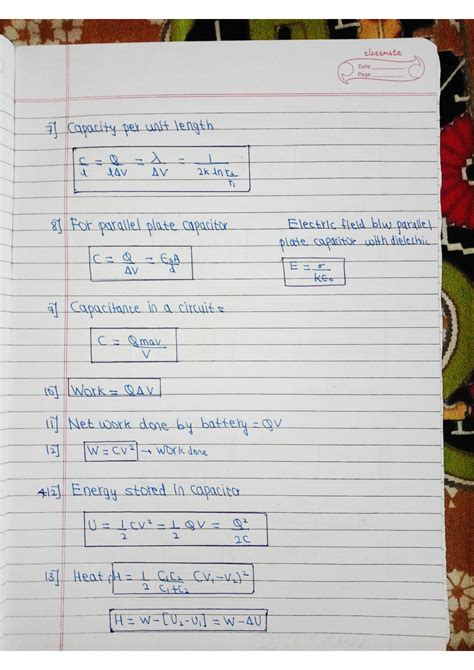 classmate
Date
Page
7] Capacity per unit length
C/l = Q/lΔV = λ/ΔV = 1/2k ln r2/r1
8] For parallel plate capacitor
C = Q/ΔV = ε0A/d
Electric field b/w parallel
plate capacitor with dielectric
E = σ/kε0
9] Capacitance in a circuit =
C = Qmax/V
10] Work = QΔV
11] Net work done by battery = QV
12] W = CV² → work done
12] Energy stored in capacitor
U = 1/2 CV² = 1/2 QV = Q²/2C
13] Heat, H = 1/2 C1C2/C1+C2 (V1-V2)²
H = W-[U2-U1] = W-ΔU